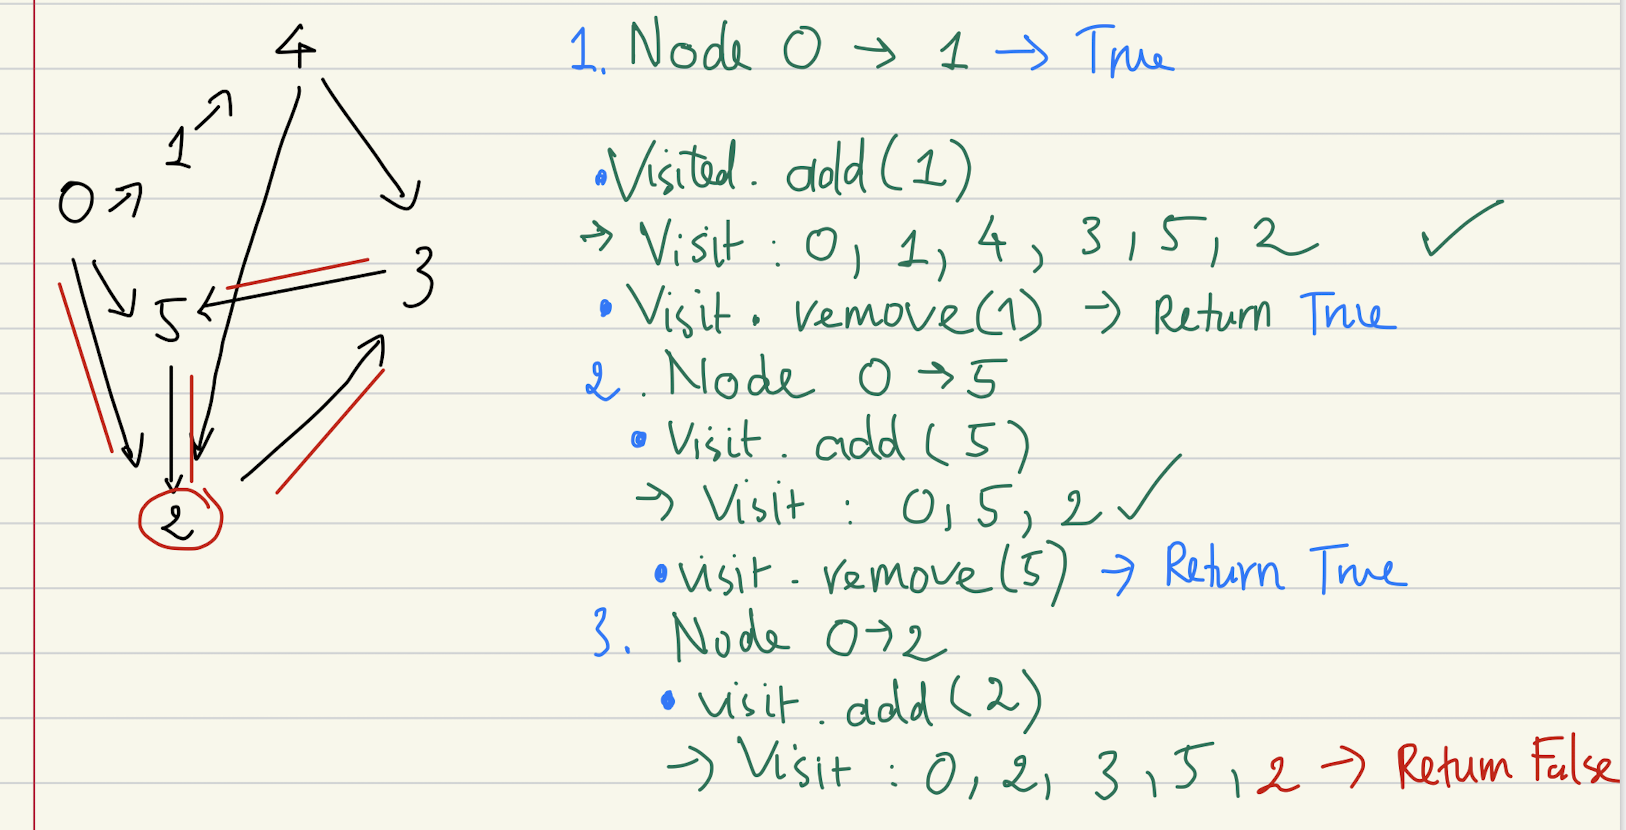 4
1
0
5
3
2
1. Node 0 → 1 → True
• Visited. add(1)
→ Visit : 0, 1, 4, 3, 5, 2 ✓
• Visit. remove(1) → Return True
2. Node 0 → 5
• Visit. add(5)
→ Visit : 0, 5, 2 ✓
• visit. remove(5) → Return True
3. Node 0→2
• visit. add(2)
→ Visit : 0, 2, 3, 5, 2 → Return False